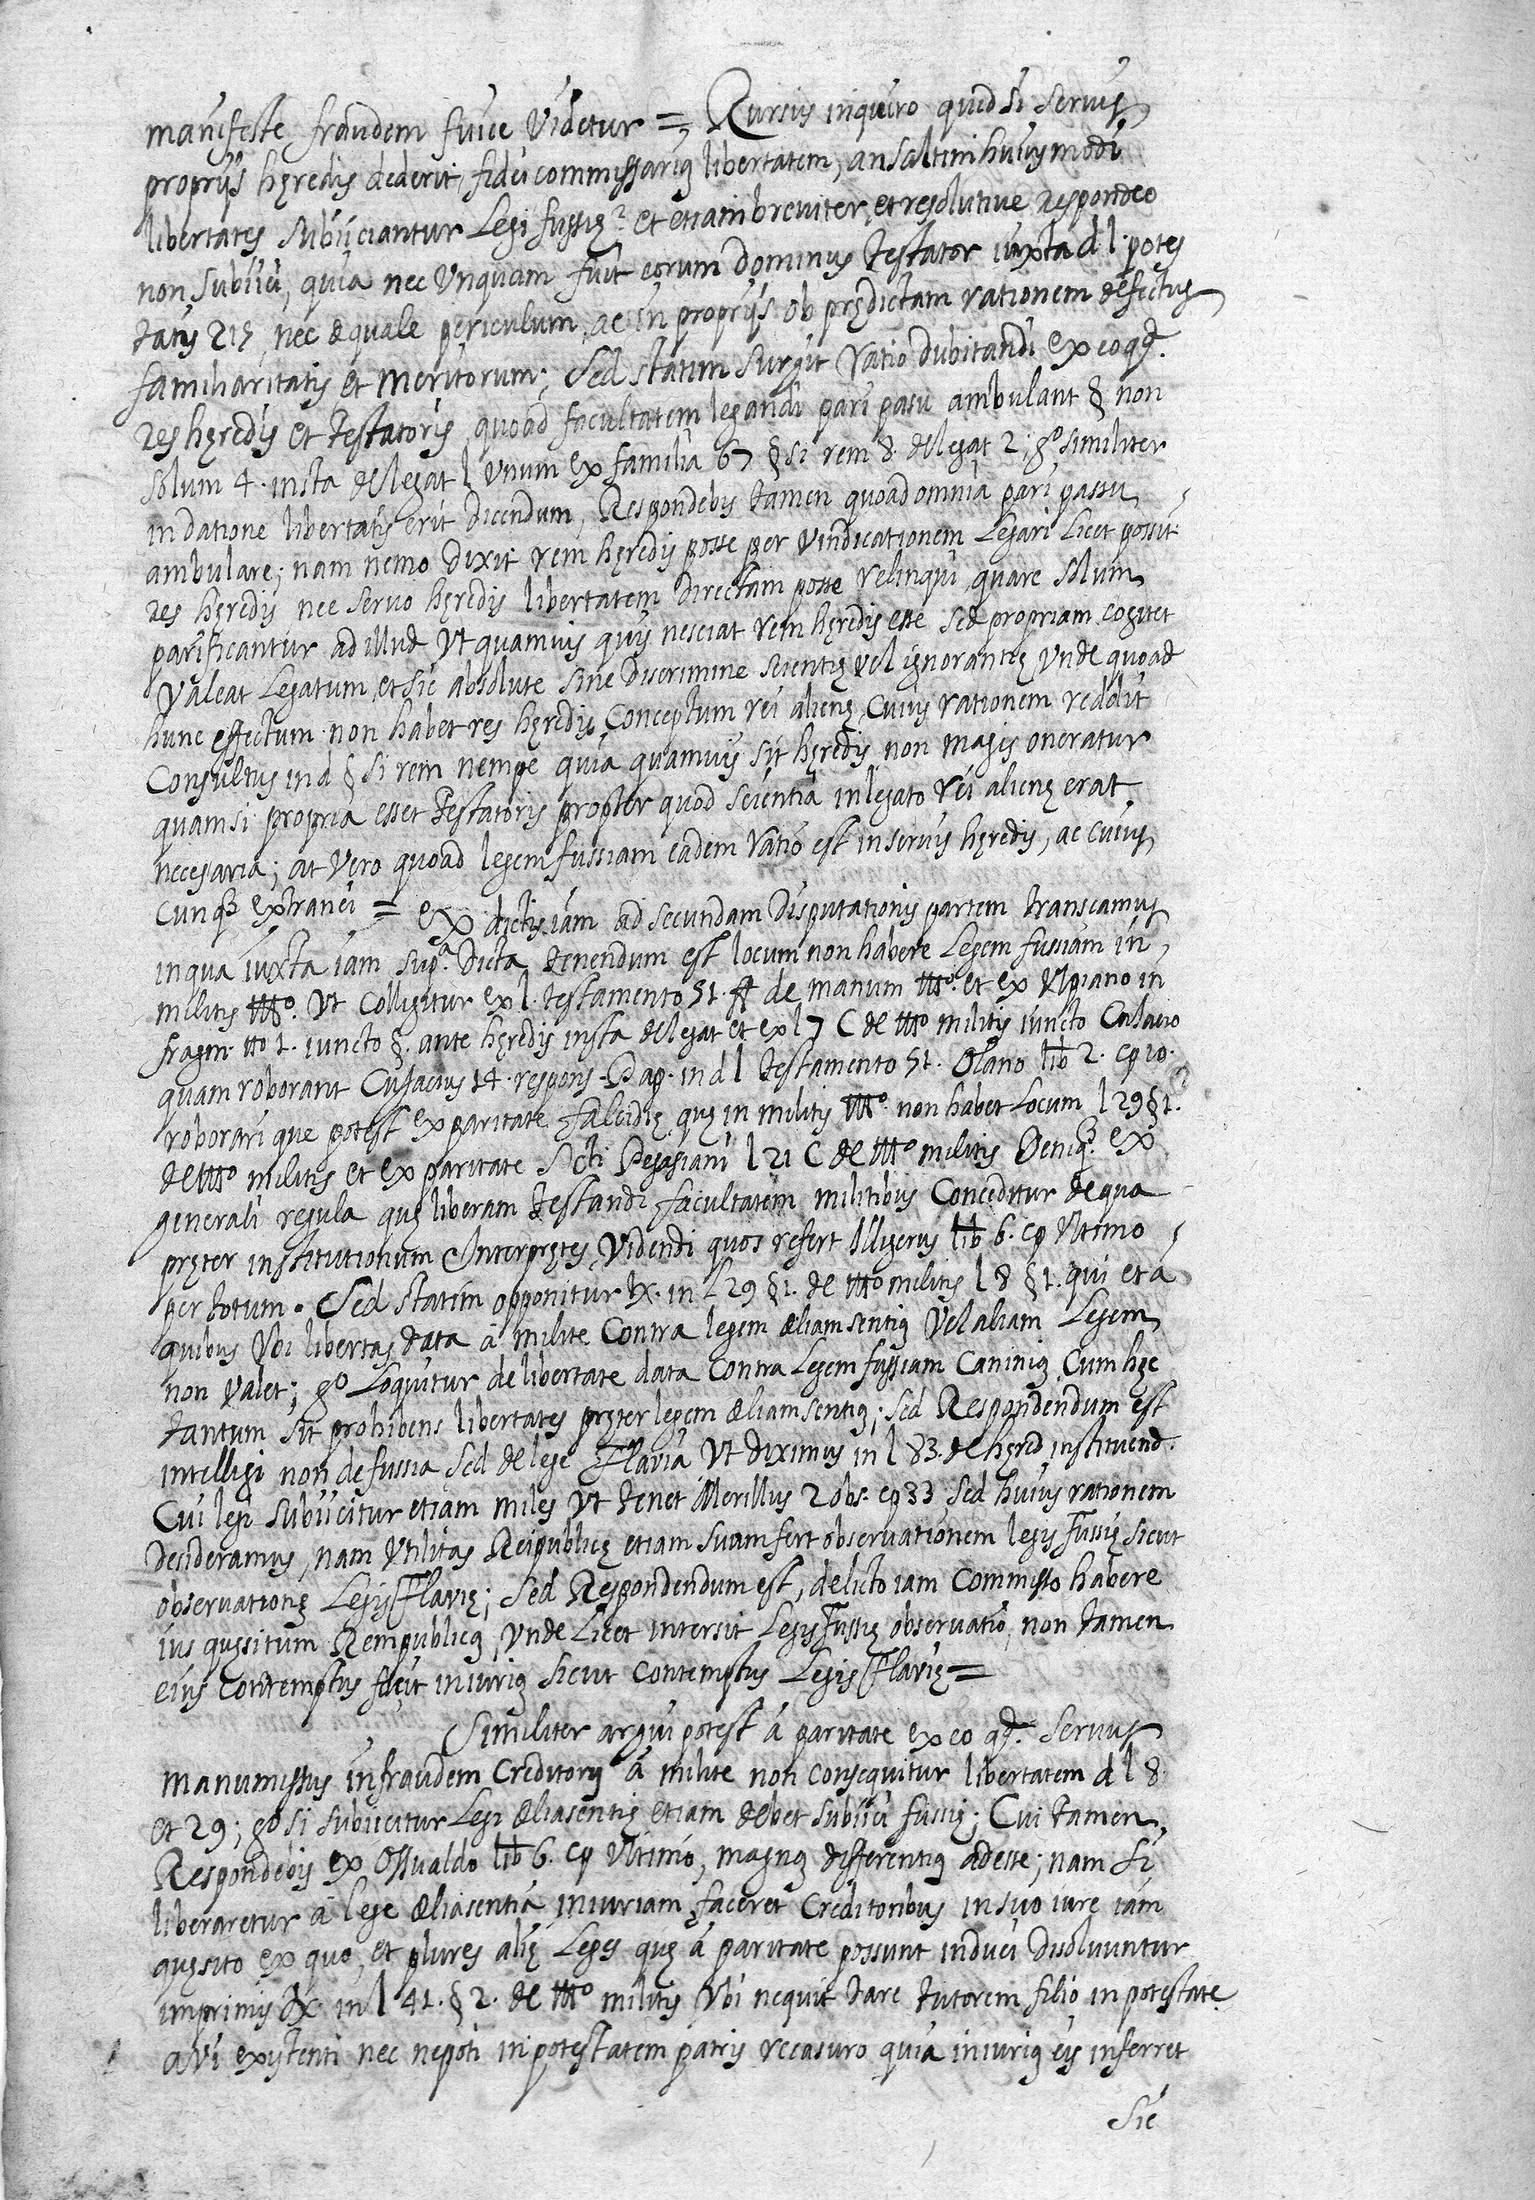 manifeste fraudem fuiçe videtur = Rursus inquiro quid si servis
proprijs hęredis dederit, fideicommissariã libertatem, an saltim huius modi
libertates subijciantur Legi fussię? et etiam breviter, et resolutive respondeo
non subijci, quia nec unquam fuit eorum dominus testator iuxta d l. potes
tatis 215, nec æquale periculum, ac in proprijs ob prędictam rationem defectus
familiaritatis et meritorum; Sed statim surgit ratio dubitandi ex eo qd.
res hęredis et testatoris, quoad facultatem legandi pari pasu ambulant § non
solum 4. insta de legat l unum ex familia 67 § si rem 8. de legat 2; gº similiter
in datione libertatis erit dicendum, Respondebis tamen quoad omnia pari passu
ambulare; nam nemo dixit rem hęredis posse per vindicationem Legari Licet possit
res hęredis nec servo hęredis libertatem directam posse relinqui, quare solum
parificantur ad illud ut quamvis quis nesciat rem hęredis esse sed propriam cogitet
valeat Legatum, et sic absolute sine discrimine scientię vel ignorantię, unde quoad
hunc effectum non habet res hęredis Conceptum rei alienę, Cuius rationem reddit
Consultus in d § si rem nempe quia quamvis sit hęredis non magis oneratur
quam si propria esset testatoris propter quod scientia in legato rei alienę erat
necesaria; at vero quoad legem fussiam eadem ratio est in servis hęredis, ac cuius
cunqz extranei = ex dictis iam ad secundam disputationis partem transeamus
in qua iuxta iam supª. dicta tenendum est locum non habere Legem fussiam in
militis tttº. ut Colligitur ex l. testamento 51. ff de manum tttº. et ex Ulpiano in
fragm. ttº 1. iuncto §. ante hęredis insta de legat et ex l 7 C de tttº militis iuncto
quam roborant Cujacius 14. respons. Pap. in d l testamento 51. Olano lib 2. cp 20.
roborari que potest ex paritate falcidię quę in militis tttº. non habet Locum l 29 § 1.
de tttº militis et ex paritate Scti Pegasiani l 21 C de tttº militis Deniqz ex
generali regula quę liberam testandi facultatem militibus Conceditur de qua
pręter institutionum Interpretes, videndi quos refert Illigerus lib 6. cp ultimo
per totum. Sed statim opponitur tx. in L 29 § 1. de tttº militis l 8 § 1. qui et a
quibus ubi libertas data à milite Contra legem æliam sentiã vel aliam Legem
non valet; gº Loquitur de libertate data Contra Legem fussiam Caniniã, Cum hęc
tantum sit prohibens libertates pręter legem æliam sentiã; sed Respondendum est
intelligi non de fussia sed de lege Flavia ut diximus in l 83. de hęred instituend.
Cui legi subijcitur etiam miles ut tenet Merillus 2 obs. cp 33 sed huius rationem
desideramus, nam utilitas Reipublicę etiam suam fert observationem legis fussię sicut
observationę Legis Flavię; sed Respondendum est, delicto iam Commisso habere
ius quęsitum Rempublicã, unde Licet intersit Legis fussię observatio, non tamen
eius contemptus facit iniuriã sicut contemptus Legis Flavię =
Similiter argui potest à paritate ex eo qd. servus
manumissus in fraudem Creditorũ à milite non consequitur libertatem d l 8
et 29; gº si subijcitur Legi æliasentię etiam debet subijci fussię; Cui tamen
Respondebis ex Ossualdo lib 6. cp ultimo, magnã differentiã adesse; nam si
liberaretur à lege æliasentia iniuriam faceret Creditoribus in suo iure iam
quęsito ex quo, et plures alię Leges quę à paritate possunt induci disoluuntur
imprimis tx in l 41. § 2. de tttº militis ubi nequit dare tutorem filio in potestate
avi existenti nec nepoti in potestatem patris recasuro quia iniuriã eis inferret
sic